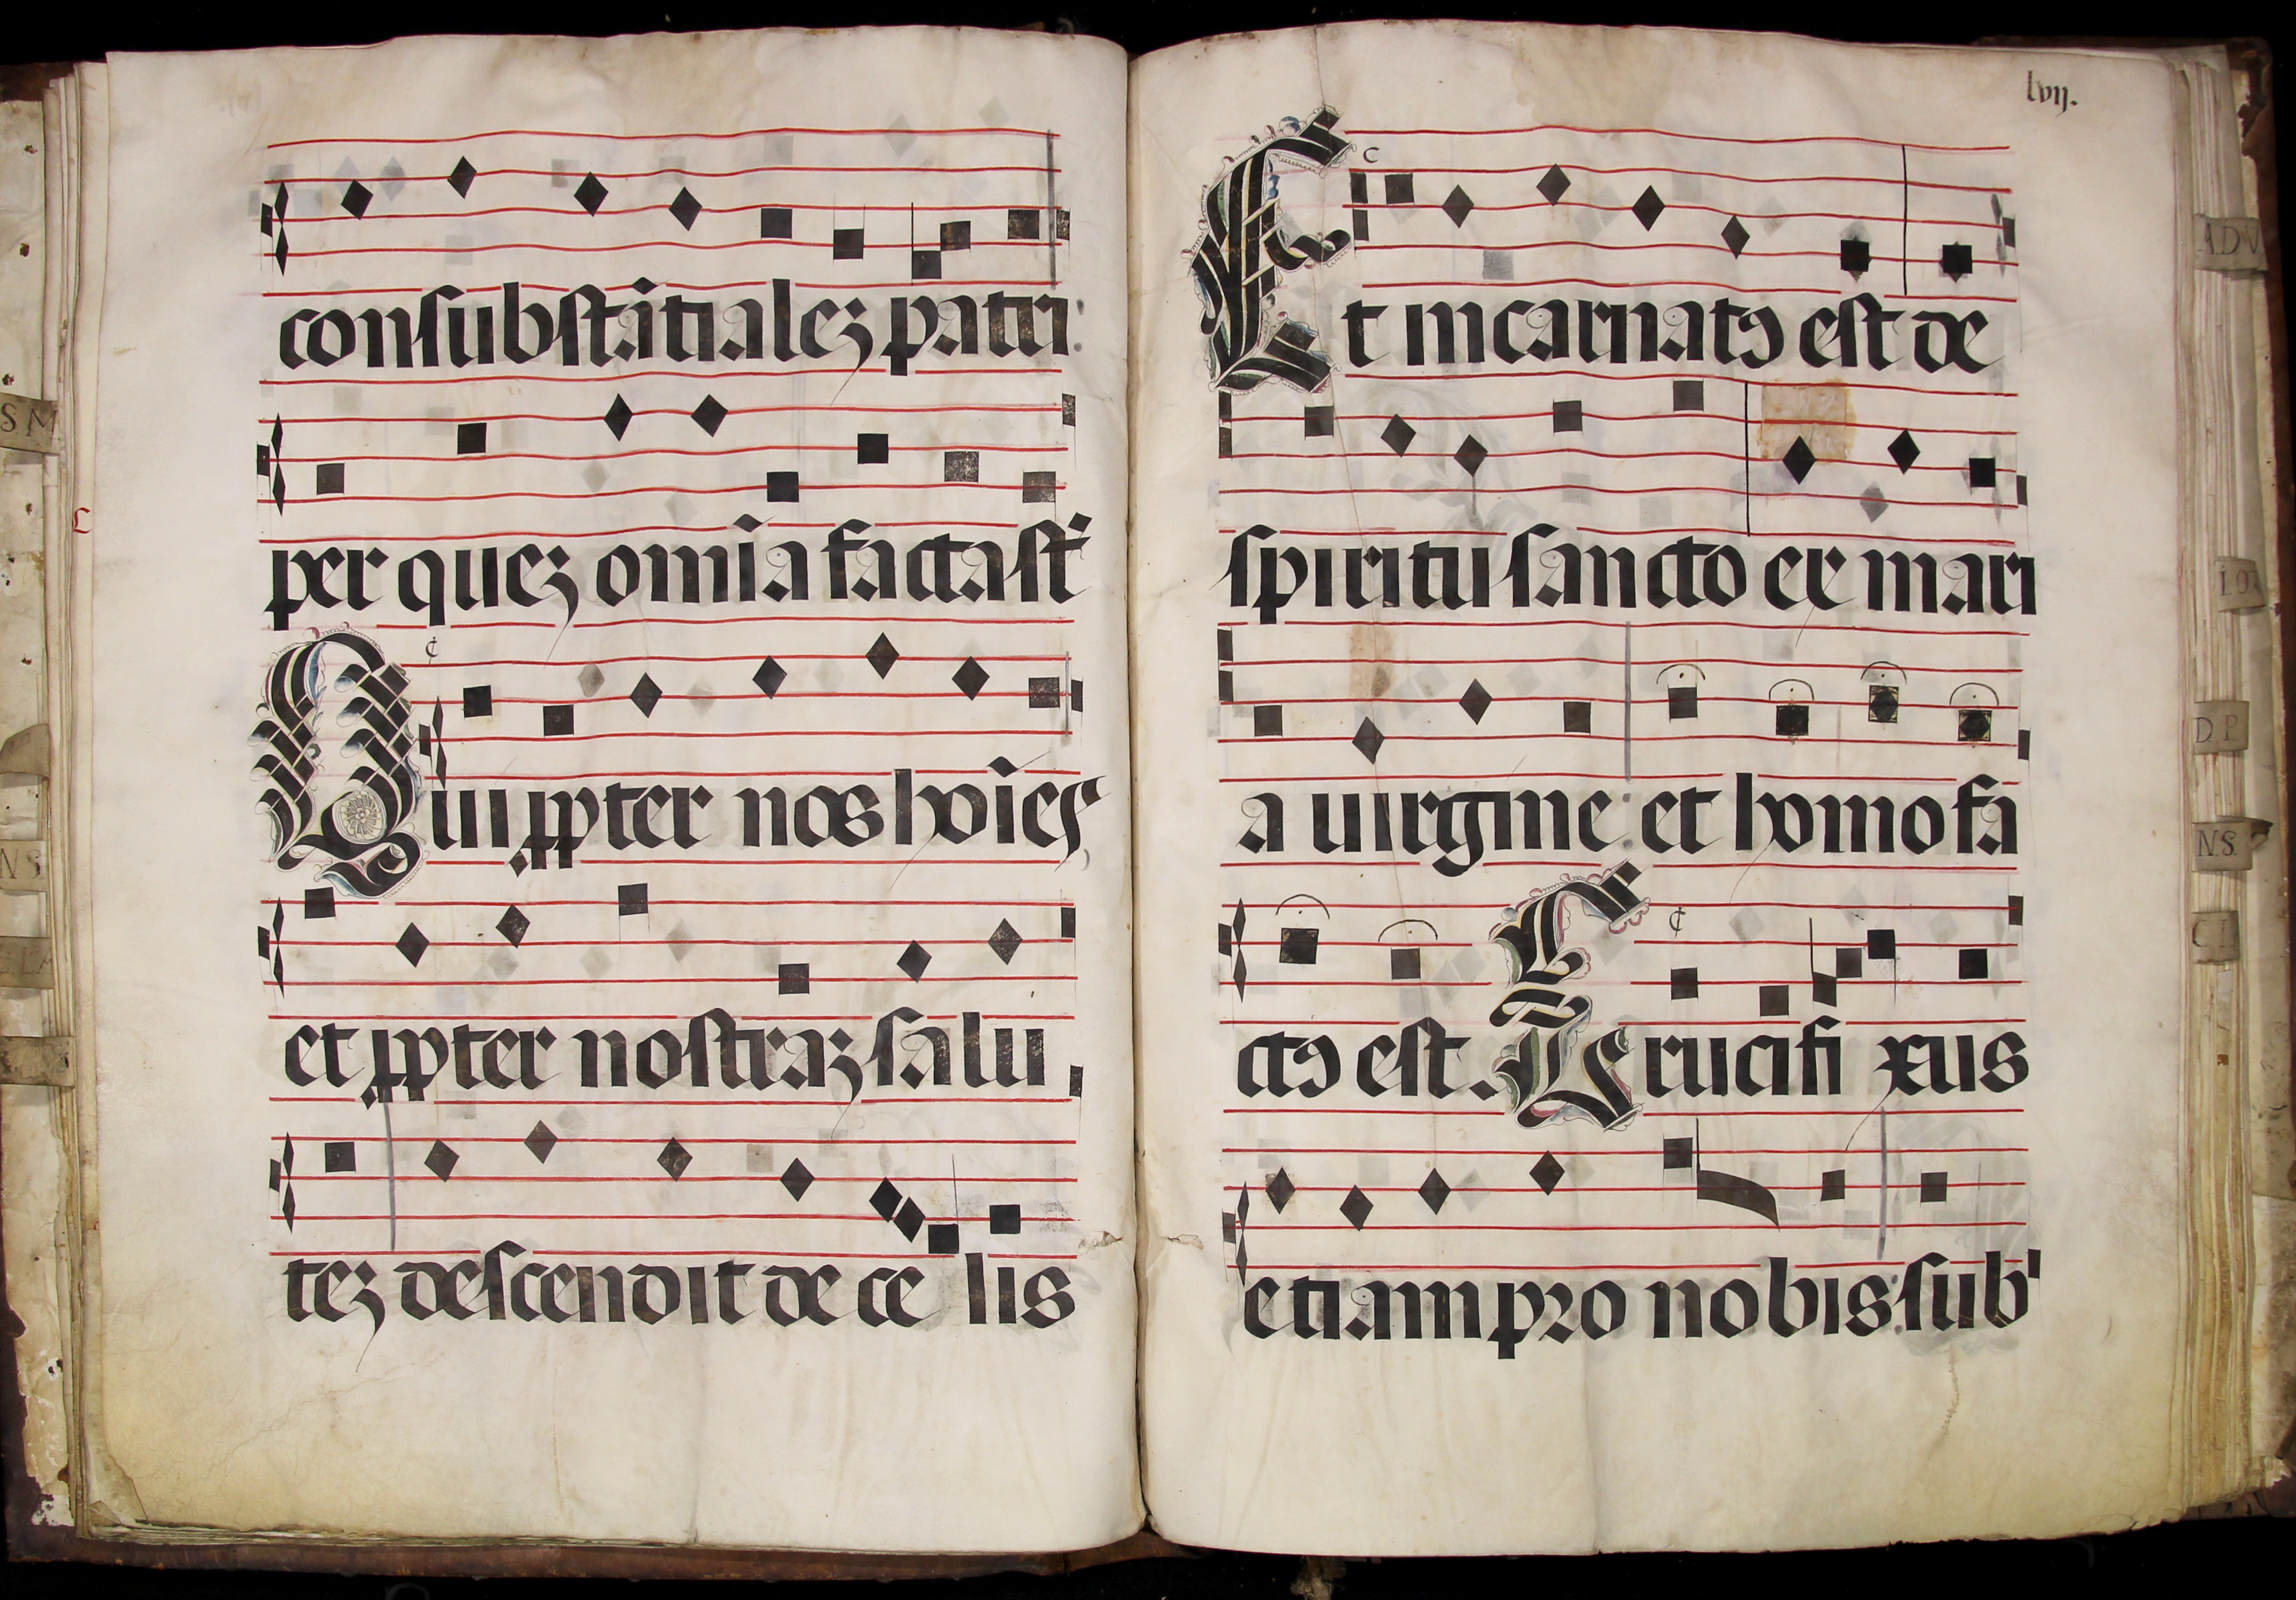 consubstātialeʒ patri:
per queʒ omīa facta sūt
Qui ꝓpter nos hoīes
et ꝓpter nostraʒ salu
teʒ descendit de ce lis
lvij.
Et incarnatꝯ est de
spiritu sancto ex mari
a uirgine: et homo fa
ctꝯ est. Crucifi xus
etiam pro nobis: sub
S M
N S
ADV
D P
N.S.